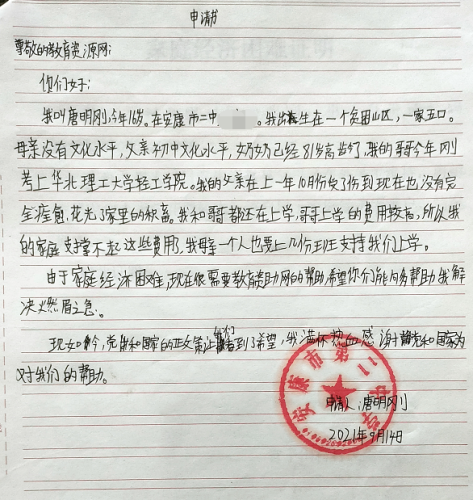 申请书
尊敬的教育资源网:
你们好:
我叫唐明刚,今年16岁。在安康市二中 。我出生在一个贫困山区,一家五口。
母亲没有文化水平,父亲初中文化水平,奶奶已经81岁高龄了,我的哥今年刚
考上华北理工大学轻工学院。我的父亲在上一年10月份负了伤到现在也没有完
全痊愈,花光了家里的积蓄。我和哥都还在上学,哥上学的费用较高,所以我
的家庭支撑不起这些费用,我母亲一个人也要上几份班支持我们上学。
由于家庭经济困难,现在很需要教育资助网的帮助,希望你们能够帮助我解
决燃眉之急。
现如今,党和国家的政策让我们看到了希望,我满怀热血感谢党和国家为
对我们的帮助。
安康市第二中学
申请人:唐明刚
2021年9月14日